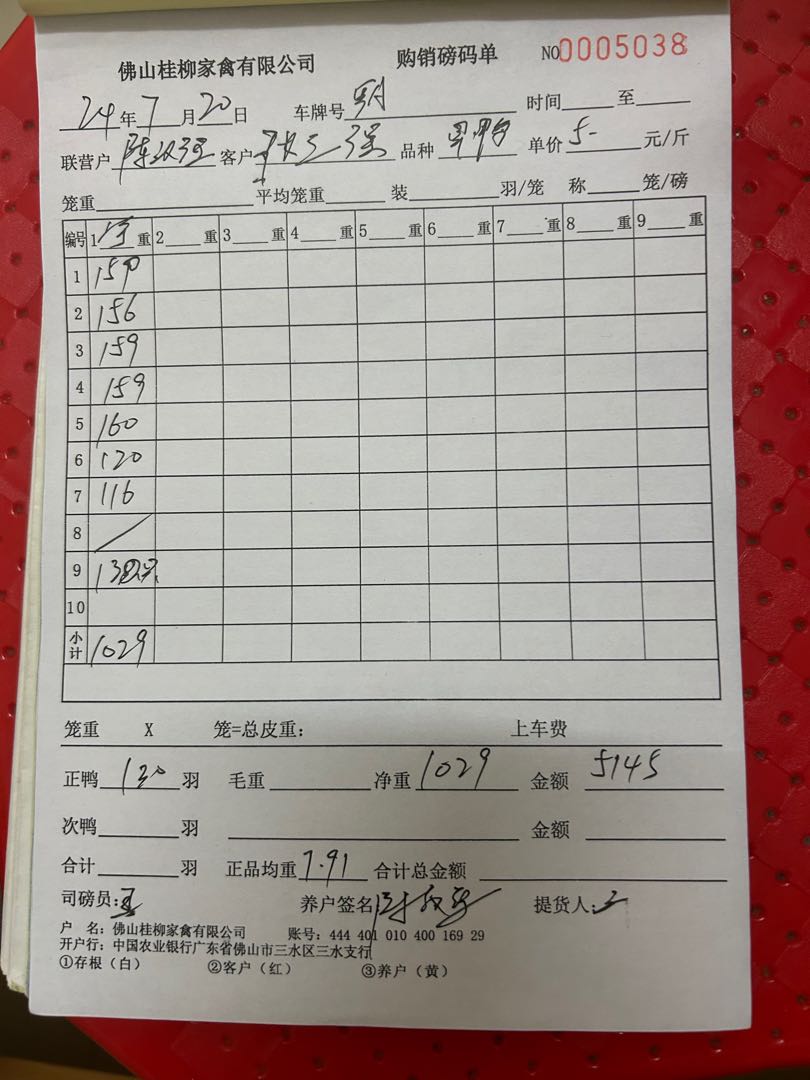 佛山桂柳家禽有限公司 购销磅码单 NO0005038
24年7月20日 车牌号 时间 至
联营户 客户 品种 单价5- 元/斤
笼重 平均笼重 装 羽/笼 称 笼/磅
编号 1 重 2 重 3 重 4 重 5 重 6 重 7 重 8 重 9 重
1
2 156
3 159
4 159
5 160
6 120
7 116
8 /
9
10
小计 1029
笼重 X 笼=总皮重: 上车费
正鸭130羽 毛重 净重1029 金额5145
次鸭 羽 金额
合计 羽 正品均重7.91 合计总金额
司磅员: 养户签名 提货人:
户 名: 佛山桂柳家禽有限公司 账号: 444 401 010 400 169 29
开户行: 中国农业银行广东省佛山市三水区三水支行
①存根（白） ②客户（红） ③养户（黄）